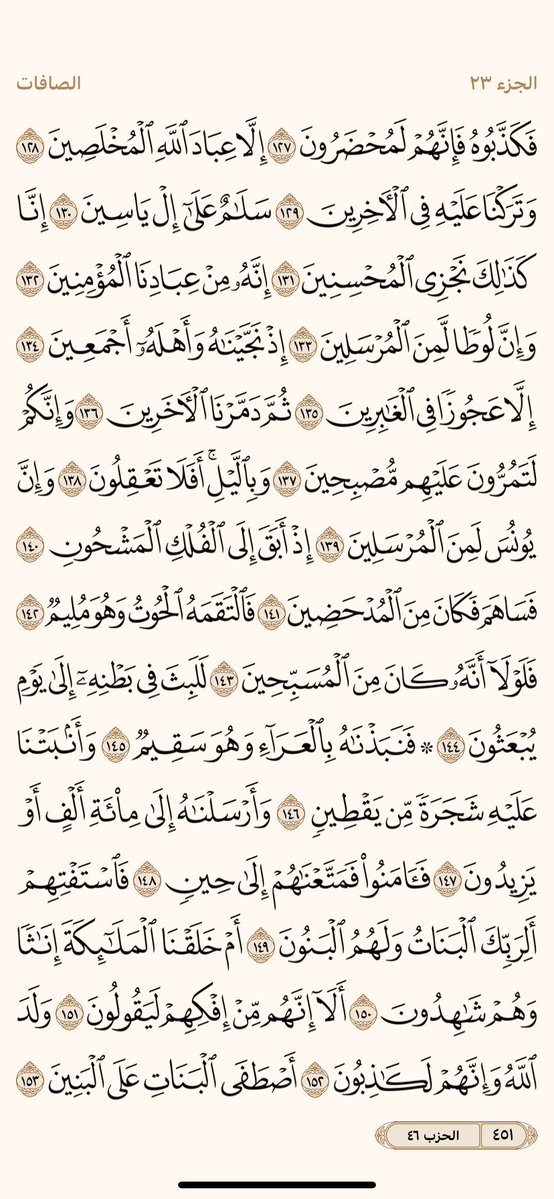 الجزء ٢٣
الصافات
فَكَذَّبُوهُ فَإِنَّهُمْ لَمُحْضَرُونَ ١٢٧ إِلَّا عِبَادَ ٱللَّهِ ٱلْمُخْلَصِينَ ١٢٨
وَتَرَكْنَا عَلَيْهِ فِي ٱلْأٓخِرِينَ ١٢٩ سَلَٰمٌ عَلَىٰٓ إِلْ يَاسِينَ ١٣٠ إِنَّا
كَذَٰلِكَ نَجْزِى ٱلْمُحْسِنِينَ ١٣١ إِنَّهُۥ مِنْ عِبَادِنَا ٱلْمُؤْمِنِينَ ١٣٢
وَإِنَّ لُوطًا لَّمِنَ ٱلْمُرْسَلِينَ ١٣٣ إِذْ نَجَّيْنَٰهُ وَأَهْلَهُۥٓ أَجْمَعِينَ ١٣٤
إِلَّا عَجُوزًا فِي ٱلْغَٰبِرِينَ ١٣٥ ثُمَّ دَمَّرْنَا ٱلْأٓخَرِينَ ١٣٦ وَإِنَّكُمْ
لَتَمُرُّونَ عَلَيْهِم مُّصْبِحِينَ ١٣٧ وَبِٱلَّيْلِ ۚ أَفَلَا تَعْقِلُونَ ١٣٨ وَإِنَّ
يُونُسَ لَمِنَ ٱلْمُرْسَلِينَ ١٣٩ إِذْ أَبَقَ إِلَى ٱلْفُلْكِ ٱلْمَشْحُونِ ١٤٠
فَسَاهَمَ فَكَانَ مِنَ ٱلْمُدْحَضِينَ ١٤١ فَٱلْتَقَمَهُ ٱلْحُوتُ وَهُوَ مُلِيمٌ ١٤٢
فَلَوْلَآ أَنَّهُۥ كَانَ مِنَ ٱلْمُسَبِّحِينَ ١٤٣ لَلَبِثَ فِي بَطْنِهِۦٓ إِلَىٰ يَوْمِ
يُبْعَثُونَ ١٤٤ ۞ فَنَبَذْنَٰهُ بِٱلْعَرَآءِ وَهُوَ سَقِيمٌ ١٤٥ وَأَنۢبَتْنَا
عَلَيْهِ شَجَرَةً مِّن يَقْطِينٍ ١٤٦ وَأَرْسَلْنَٰهُ إِلَىٰ مِا۟ئَةِ أَلْفٍ أَوْ
يَزِيدُونَ ١٤٧ فَـَٔامَنُوا۟ فَمَتَّعْنَٰهُمْ إِلَىٰ حِينٍ ١٤٨ فَٱسْتَفْتِهِمْ
أَلِرَبِّكَ ٱلْبَنَاتُ وَلَهُمُ ٱلْبَنُونَ ١٤٩ أَمْ خَلَقْنَا ٱلْمَلَٰٓئِكَةَ إِنَٰثًا
وَهُمْ شَٰهِدُونَ ١٥٠ أَلَآ إِنَّهُم مِّنْ إِفْكِهِمْ لَيَقُولُونَ ١٥١ وَلَدَ
ٱللَّهُ وَإِنَّهُمْ لَكَٰذِبُونَ ١٥٢ أَصْطَفَى ٱلْبَنَاتِ عَلَى ٱلْبَنِينَ ١٥٣
٤٥١ الحزب ٤٦